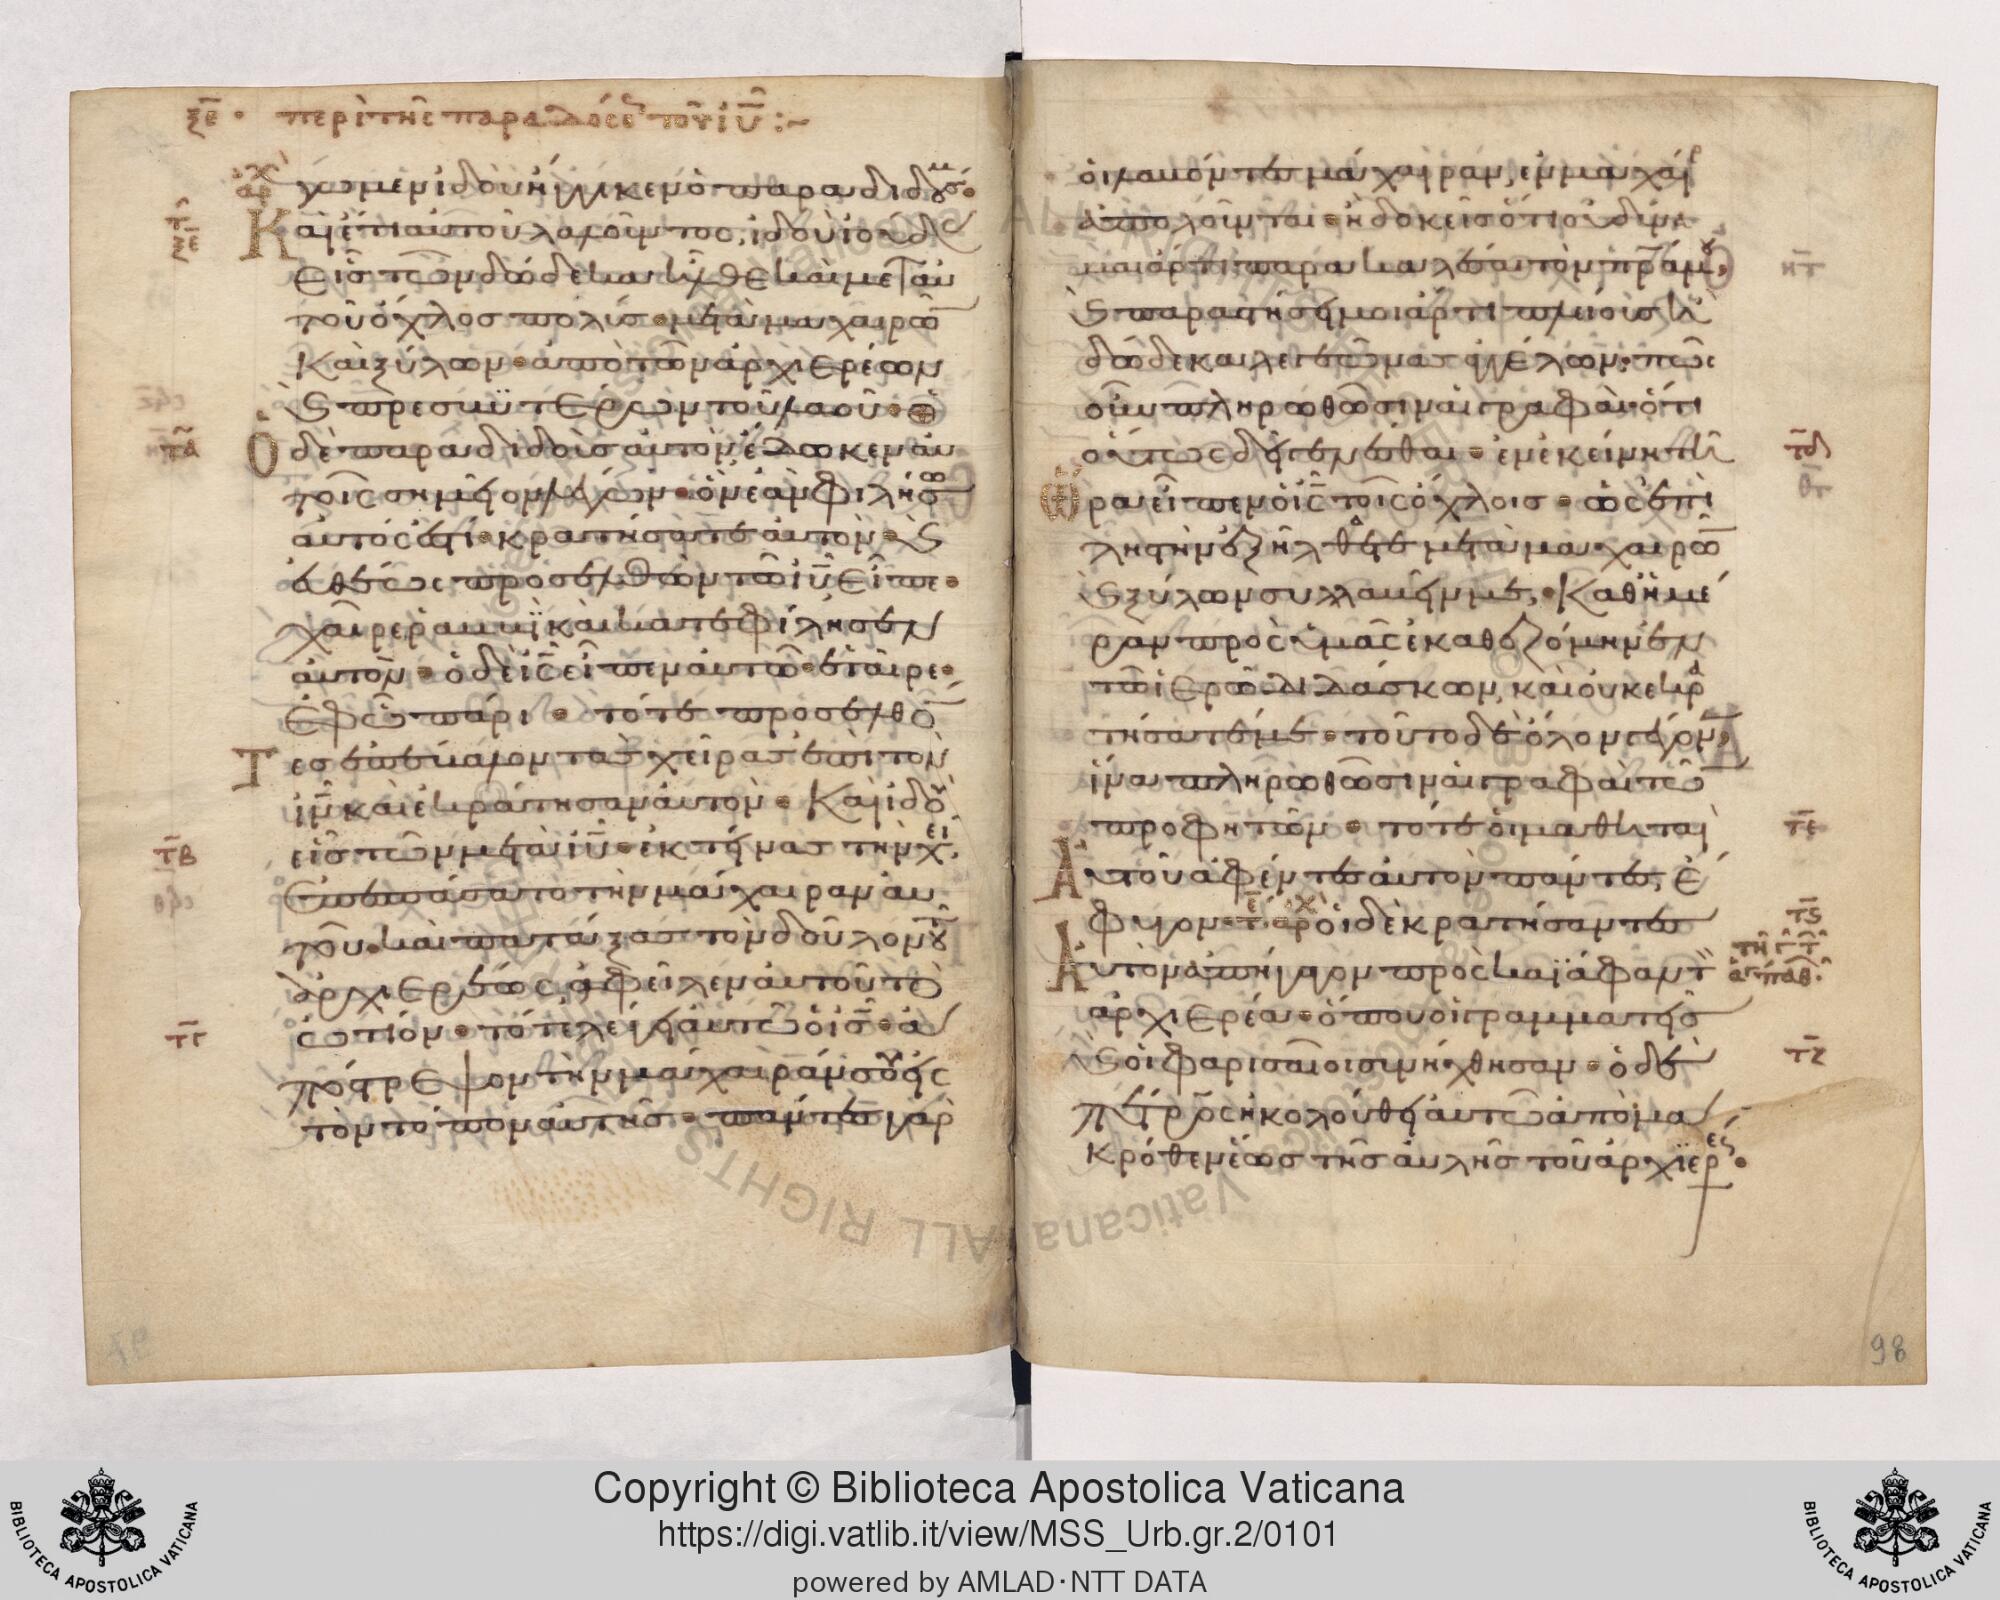 ξε · περὶ τῆς παραδόσε(ως) τοῦ ἰυ :~
ἀρχ
γωμεν ἰδοὺ ἤγγικεν ὁ παραδιδούς μ·
Καὶ ἔτι αὐτοῦ λαλοῦντος, ἰδοὺ ἰούδας
τ
ξε
εἷς τῶν δώδεκα ἦλθε καὶ μετ αὐ
τοῦ ὄχλος πολύς · μετὰ μαχαιρῶ
καὶ ξύλων · ἀπὸ τῶν ἀρχιερέων
κ πρεσβυτέρων τοῦ λαοῦ ·
τα
Ὁ δὲ παραδιδοὺς αὐτὸν ἔδωκεν αὐ
τοῖς σημεῖον λέγων · ὃν ἐὰν φιλήσω
αὐτός ἐστι · κρατήσατε αὐτόν · κ
εὐθέως προσελθὼν τῶ ἰυ εἶπε ·
χαῖρε ῥαββὶ καὶ κατεφίλησεν
αὐτόν · ὁ δὲ ις εἶπεν αὐτῶ · ἑταῖρε ·
ἐφ ὧ πάρει · τότε προσελθό
Τες ἐπέβαλον τὰς χεῖρας ἐπὶ τὸν
ιν καὶ ἐκράτησαν αὐτόν · Καὶ ἰδοὺ
τβ
εἷς τῶν μετὰ ιυ · ἐκτείνας τὴν χεῖ
ἀπεσπάσατο τὴν μάχαιραν αὐ
τοῦ · καὶ πατάξας τὸν δοῦλον τοῦ
ἀρχιερέως ἀφεῖλεν αὐτοῦ τὸ
τγ
ὠτίον · τότε λέγει αὐτῶ ὁ ις · ἀ
πόστρεψον τὴν μάχαιράν σου εἰς
τὸν τόπον αὐτῆς · πάντες γὰρ
οἱ λαβόντες μάχαιραν, ἐν μαχαίρ
ἀπολοῦνται · ἢ δοκεῖς ὅτι οὐ δύνα
μαι ἄρτι παρακαλέσαι τὸν πρα μου ·
κ παραστήσει μοι ἄρτι πλείους ἢ
δώδεκα λεγεῶνας ἀγγέλων · πῶς
οὖν πληρωθῶσιν αἱ γραφαὶ ὅτι
τδ
οὕτως δεῖ γενέσθαι · ἐν ἐκείνη τῆ
Ὥρα εἶπεν ὁ ις τοῖς ὄχλοις · ὡς ἐπὶ
ληστὴν ἐξήλθετε μετὰ μαχαιρῶ
κ ξύλων συλλαβεῖν με · Καθ ἡμέ
ραν πρὸς ὑμᾶς ἐκαθεζόμην ἐν
τῶ ἱερῶ διδάσκων, καὶ οὐκ ἐκρα
τήσατέ με · τοῦτο δὲ ὅλον γέγον
ἵνα πληρωθῶσιν αἱ γραφαὶ τῶ
τε
προφητῶν · τότε οἱ μαθηταὶ
Αὐτοῦ ἀφέντες αὐτὸν πάντες, ἔ
τς
φυγον · τε ἀρχ οἱ δὲ κρατήσαντες
Αὐτὸν ἀπήγαγον πρὸς καϊάφαν τ
ἀρχιερέα · ὅπου οἱ γραμματεῖς
τζ
κ οἱ φαρισαῖοι συνήχθησαν · ὁ δὲ
πέτρος ἠκολούθει αὐτῶ ἀπὸ μα
κρόθεν ἕως τῆς αὐλῆς τοῦ ἀρχιερέ ·
98
Copyright © Biblioteca Apostolica Vaticana
https://digi.vatlib.it/view/MSS_Urb.gr.2/0101
powered by AMLAD·NTT DATA
BIBLIOTECA APOSTOLICA VATICANA
BIBLIOTECA APOSTOLICA VATICANA